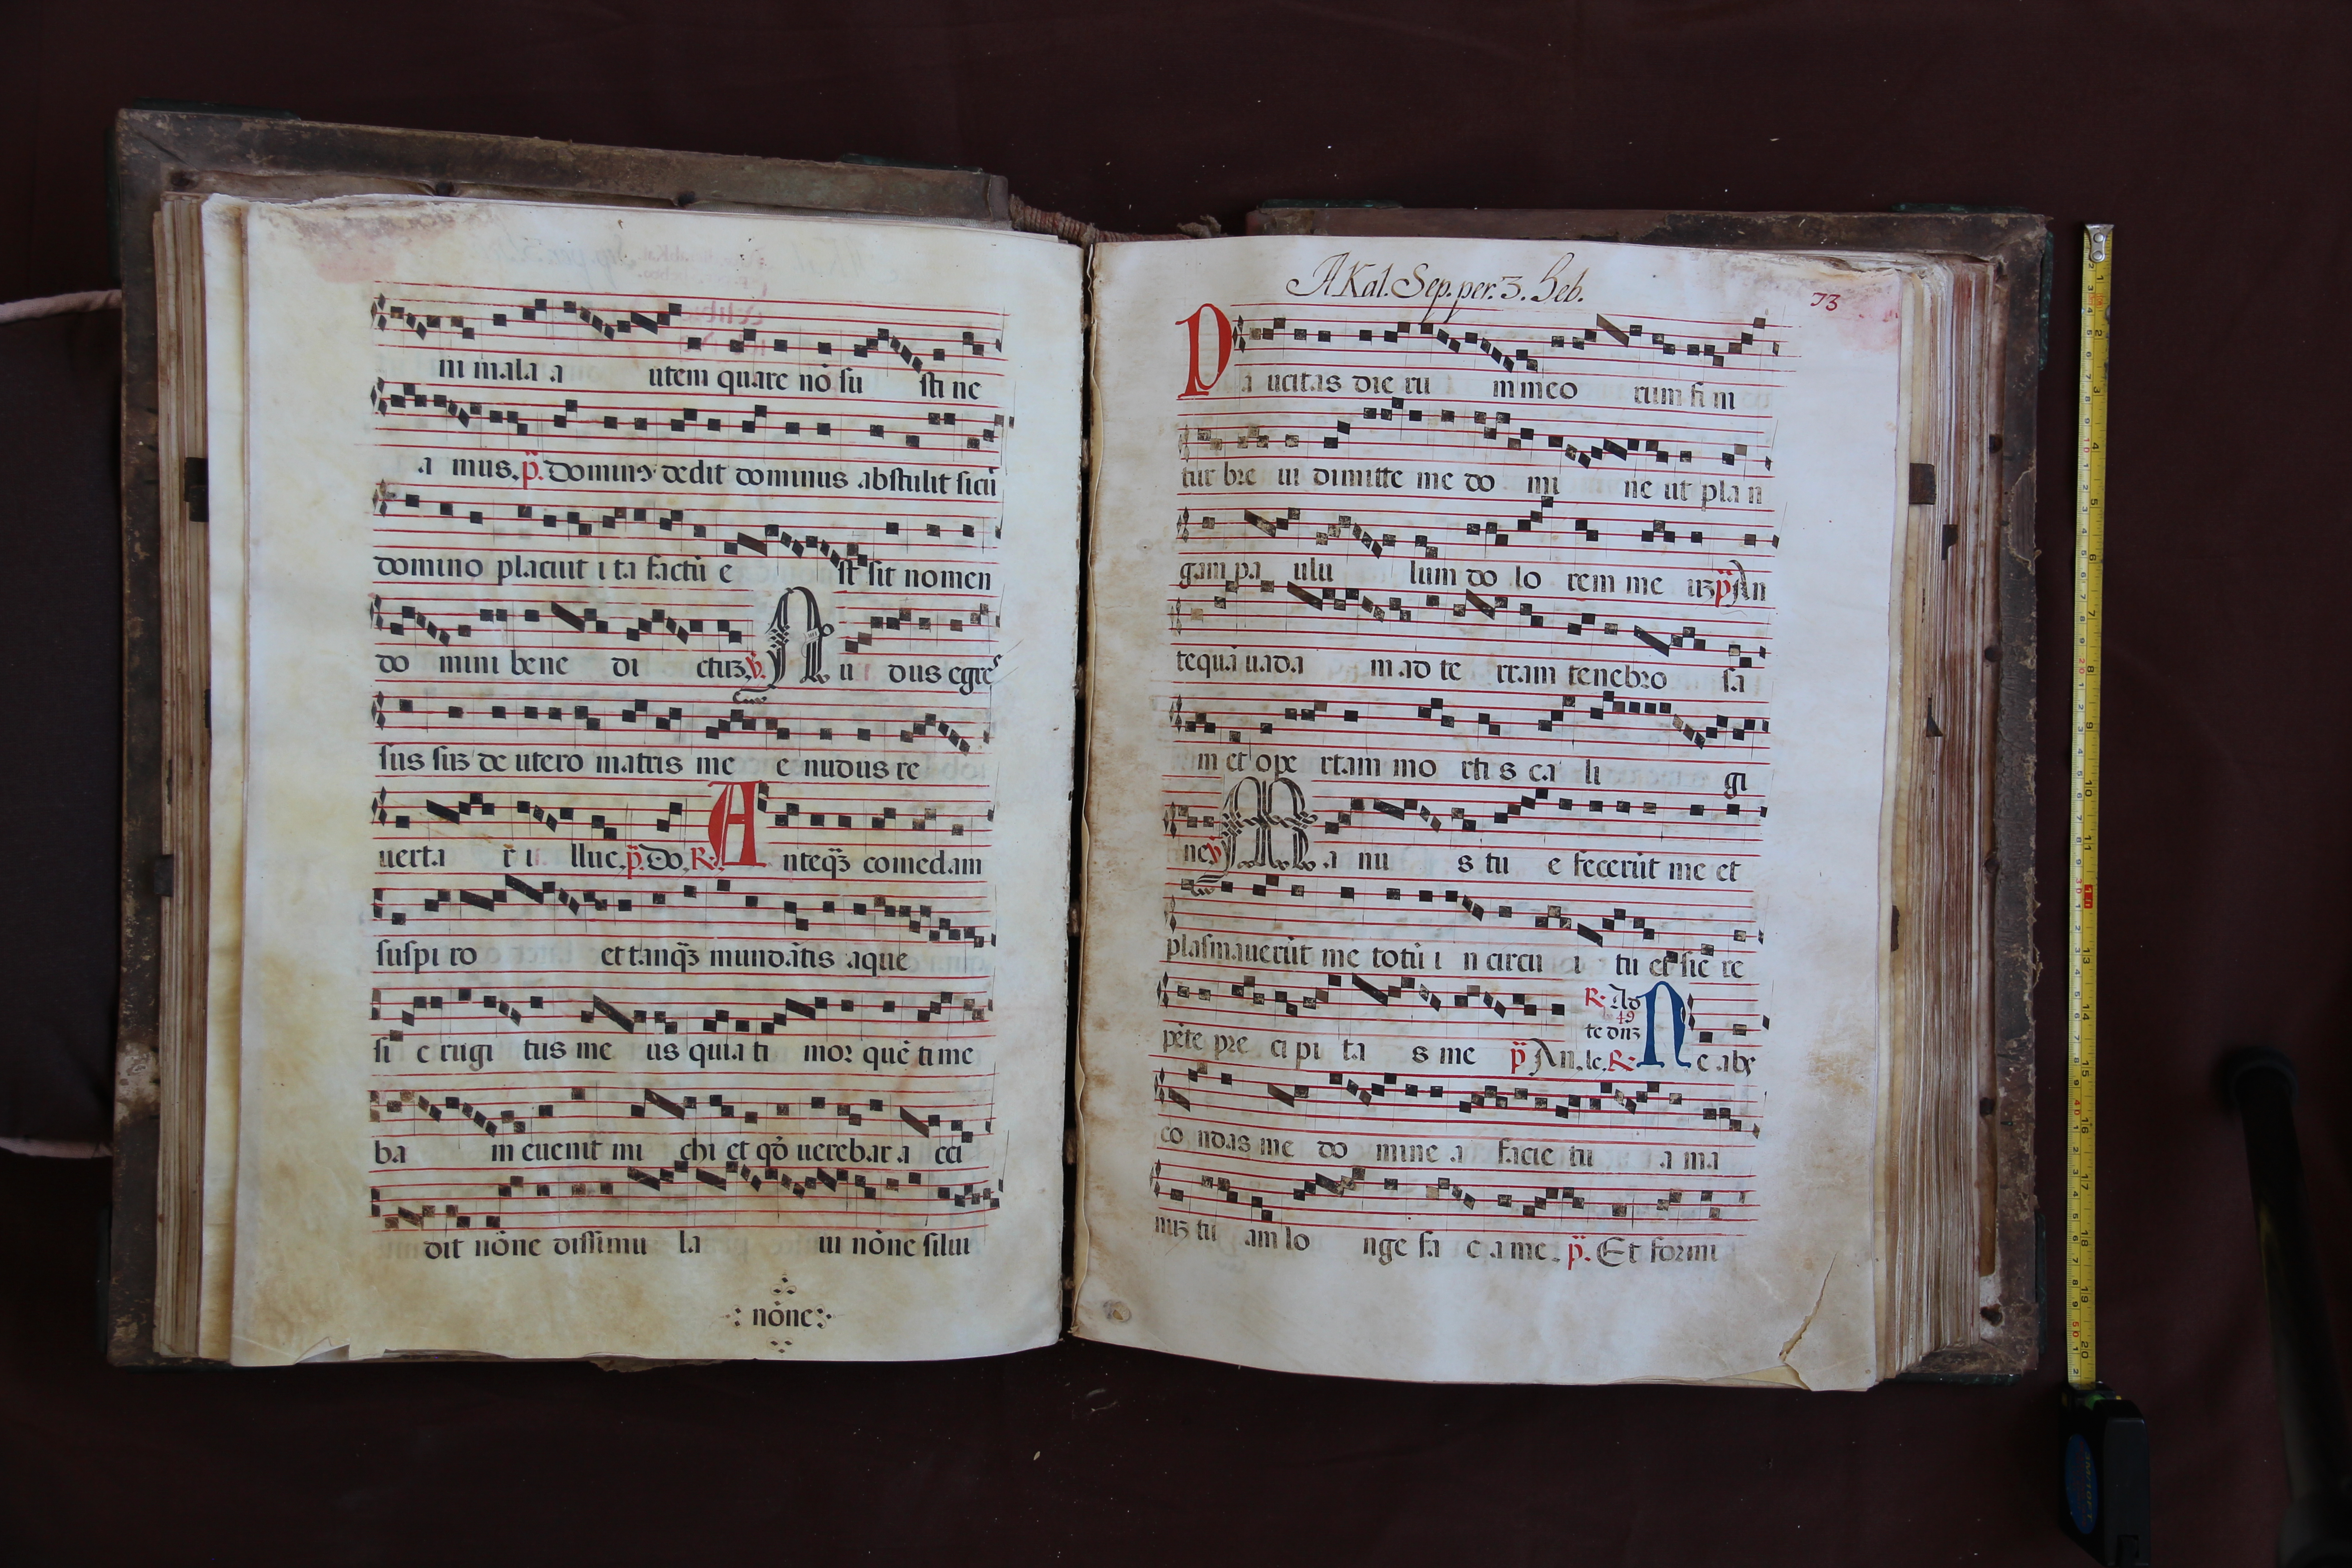 ni mala a utem quare nō su sti ne
a mus. p̄. Dominꝰ dedit dominus abstulit sicū
domino placuit i ta factū e st sit nomen
do mini bene di ctuꝫ. ℣. Nu dus egres
sus suꝫ de utero matris me e nudus re
uerta r i lluc. p̄. Do. R. Anteqꝫ comedam
suspi ro et tanqꝫ mundātis aque
si c rugi tus me us quia ti mor quē time
ba m euenit mi chi et qō uerebar a cci
dit nōne dissimu la ui nōne silui
: nōne :
A Kal. Sep. per. 3. Heb.
73
Pa ucitas die ru m meo rum fi ni
tur bre ui dimitte me do mi ne ut pla n
gam pa ulu lum do lo rem me uꝫ p̄ An
tequā uada m ad te rram tenebro sa
m et ope rtam mo rti s ca li gi
ne ℣ Ma nu s tu e fecerūt me et
plasmauerūt me totū i n circu i tu et sic re
pēte pre ci pi ta s me p̄ An. le. R. Ne abs
R. Ad
49
te dnꝫ
co ndas me do mine a facie tu a ma
nuꝫ tu am lo nge fa c a me. p̄. Et formi